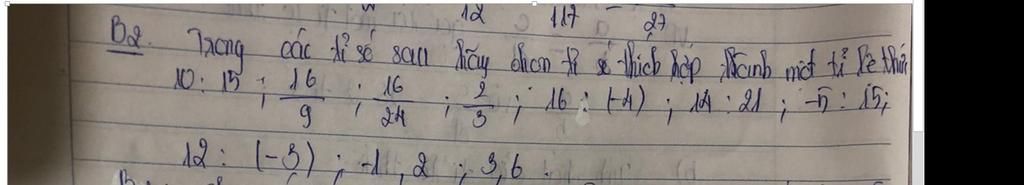 12 117 27
B2. Trong các tỉ số sau hãy chọn tỉ số thích hợp thành một tỉ lệ thức
10 : 15 ; 16/9 ; 16/24 ; 2/3 ; 16 : (-4) ; 14 : 21 ; -5 : 15;
12 : (-3) ; -1,2 ; 3,6 .